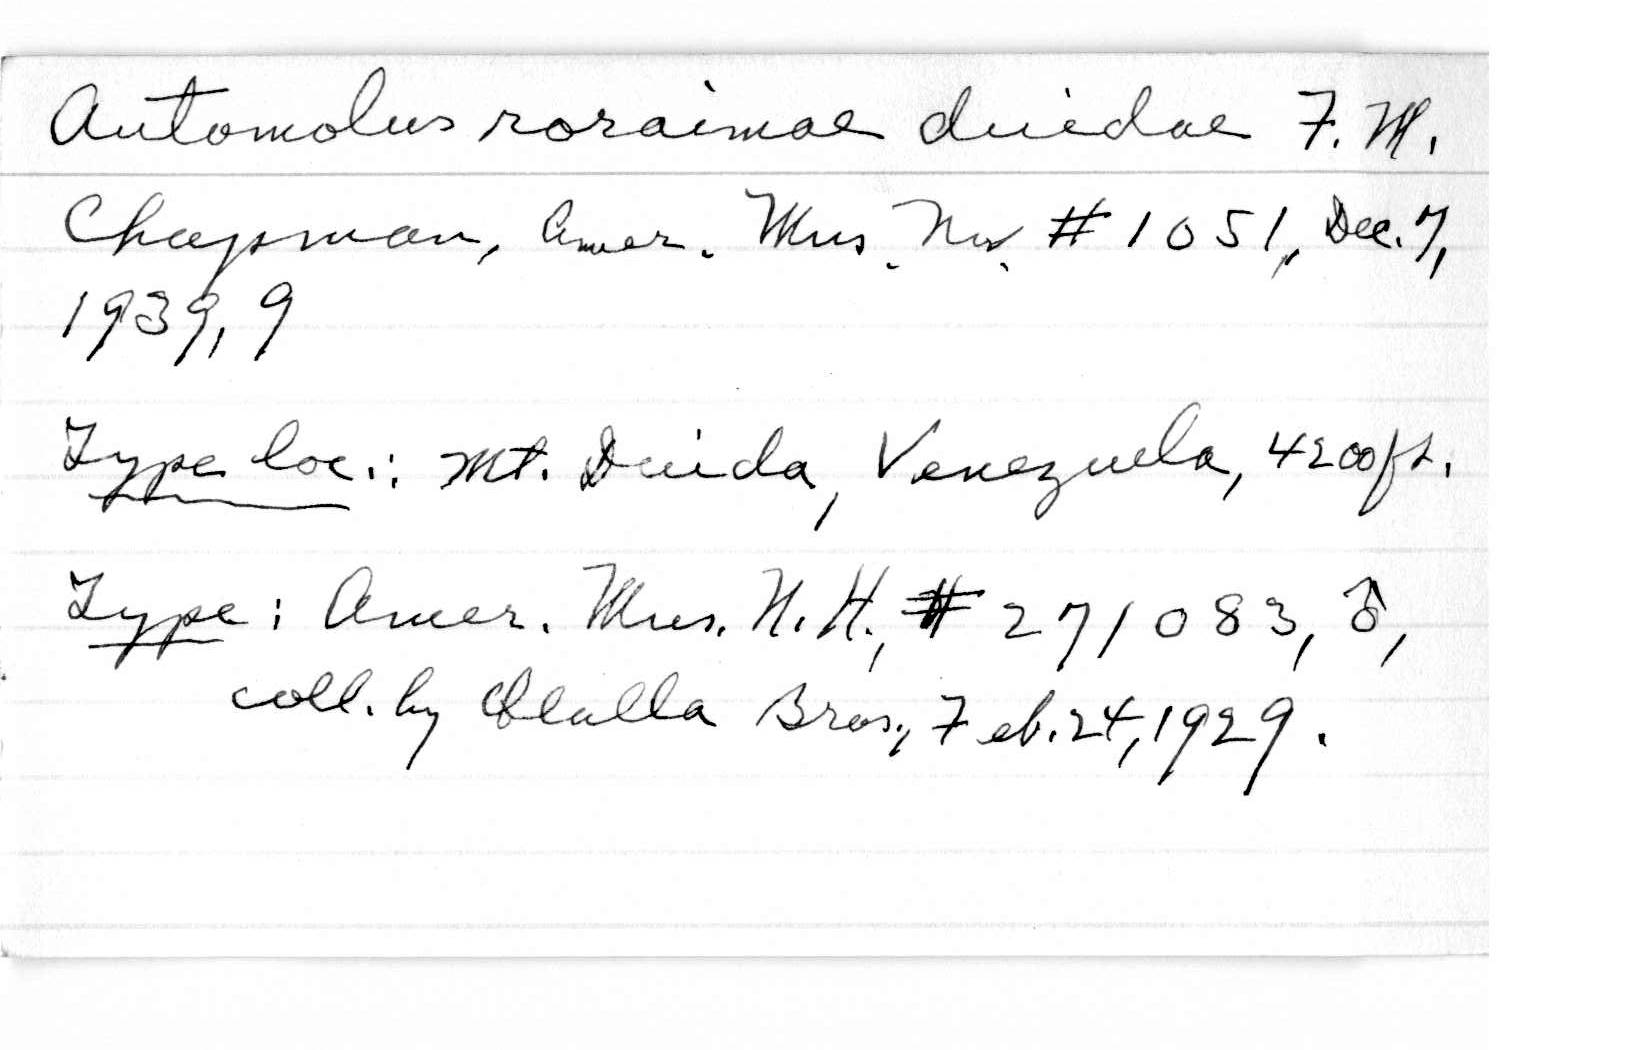 Automolus roraimae duidae F. M.
Chapman, Amer. Mus. Nov. # 1051, Dec. 7,
1939, 9
Type loc.: Mt. Duida, Venezuela, 4200 ft.
Type: Amer. Mus. N. H., # 271083, ♂,
coll. by Olalla Bros., Feb. 24, 1929.